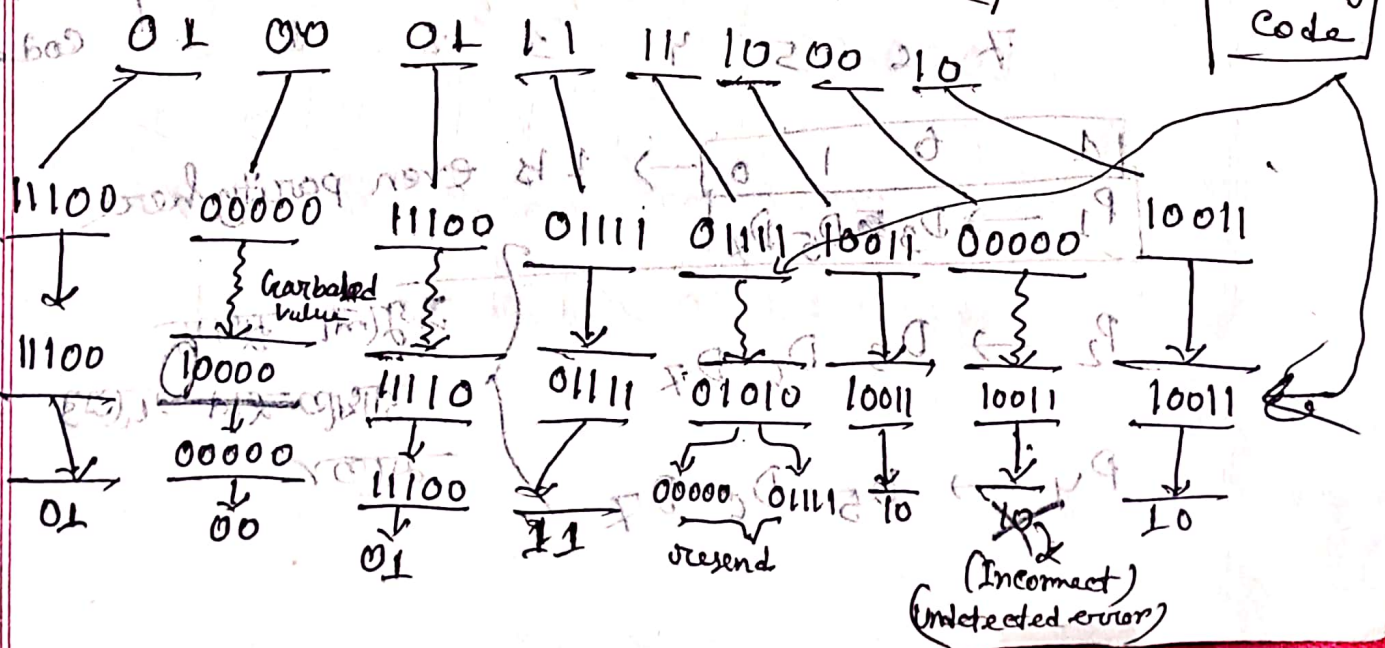 Code
01 00 01 11 11 10 00 10
11100 00000 11100 01111 01111 10011 00000 10011
Garbaled
value
11100 10000 11110 01111 01010 10011 10011 10011
00000 11100 00000 01111
01 00 01 11 10 10 10
resend
(Inconnect)
(undetected error)